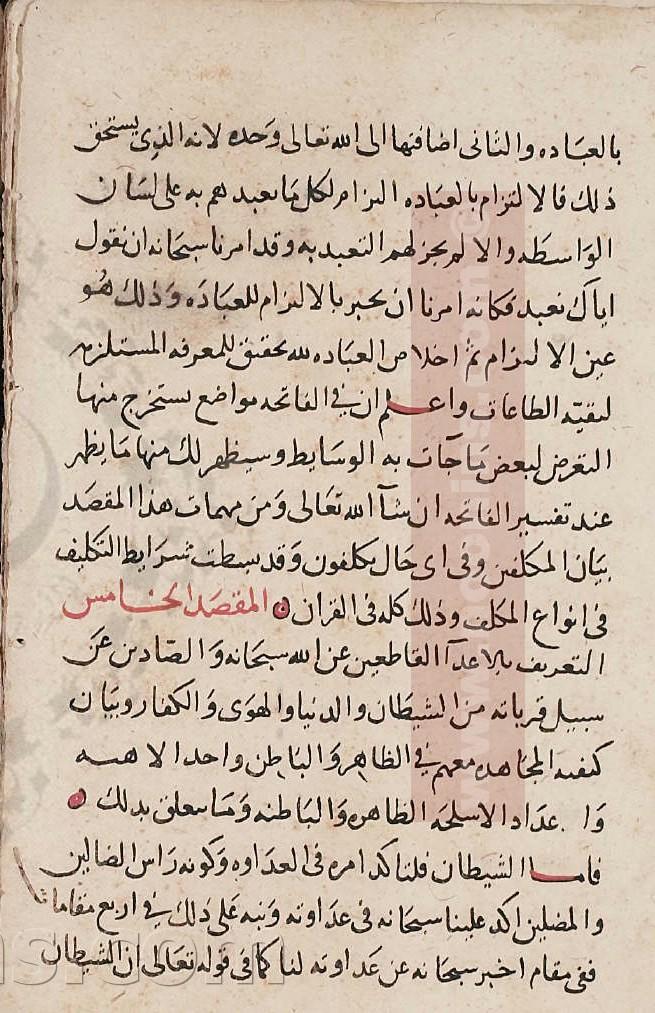 بالعباده والثانى اضافتها الى الله تعالى وحده لانه الذى يستحق
ذلك فالالتزام بالعباده التزام لكل ما يعبد هم به على لسان
الواسطه والا لم يجز لهم التعبد به وقد امرنا سبحانه ان نقول
اياك نعبد فكانه امرنا ان نخبر بالالتزام للعباده وذلك هو
عين الالتزام ثم اخلاص العباده لله تحقيق للمعرفه المستلزمه
لبقيه الطاعات واعلم ان فى الفاتحه مواضع يستخرج منها
التعرض لبعض ما جآت به الوسايط وسيظهر لك منها ما يظهر
عند تفسير الفاتحه ان شآ الله تعالى ومن مهمات هذا المقصد
بيان المكلفين وفى اى حال يكلفون وقد بسطت شرايط التكليف
فى انواع المكلف وذلك كله فى القران المقصد الخامس
التعريف بالاعدآ القاطعين عن الله سبحانه والصادين عن
سبيل قرباته من الشيطان والدنيا والهوى والكفار وبيان
كيفيه المجاهده معهم فى الظاهر والباطن واحد الاهبه
واعداد الاسلحه الظاهره والباطنه وما يتعلق بذلك
فاما الشيطان فلتاكد امره فى العداوه وكونه راس الضالين
والمضلين اكد علينا سبحانه فى عداوته ونبه على ذلك فى اربع مقامات
ففى مقام اخبر سبحانه عن عداوته لنا كما فى قوله تعالى ان الشيطان